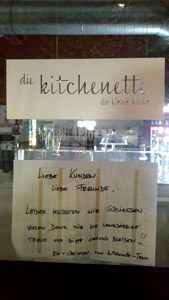 die
kitchenette
.... die kleine küche
LIEBE KUNDEN
LIEBE FREUNDE,
LEIDER MUSSTEN WIR SCHLIESSEN
VIELEN DANK FÜR DIE LANGJÄHRIGE
TREUE UND BITTE GESUND BLEIBEN!!